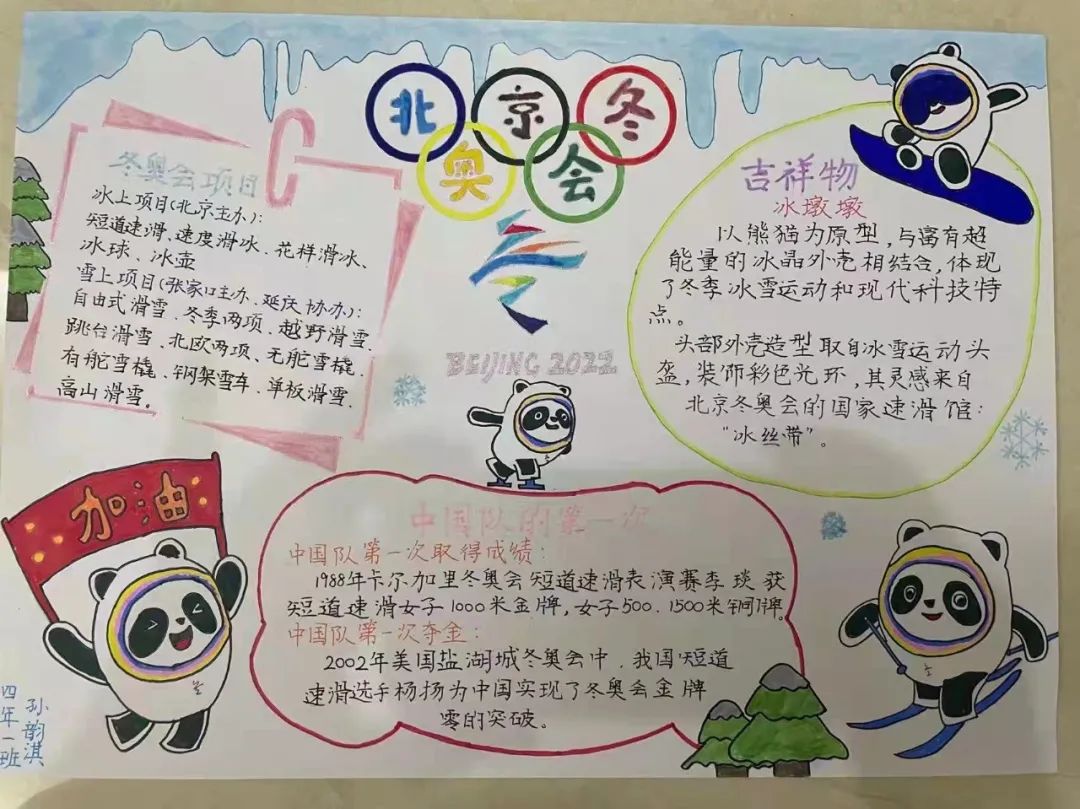 北京冬
奥会
BEIJING 2022
冬奥会项目
冰上项目(北京主办):
短道速滑、速度滑冰、花样滑冰、
冰球、冰壶
雪上项目(张家口主办、延庆协办):
自由式滑雪、冬季两项、越野滑雪、
跳台滑雪、北欧两项、无舵雪橇、
有舵雪橇、钢架雪车、单板滑雪、
高山滑雪。
吉祥物
冰墩墩
以熊猫为原型,与富有超
能量的冰晶外壳相结合,体现
了冬季冰雪运动和现代科技特
点。
头部外壳造型取自冰雪运动头
盔,装饰彩色光环,其灵感来自
北京冬奥会的国家速滑馆:
“冰丝带”。
加油
中国队的第一次
中国队第一次取得成绩:
1988年卡尔加里冬奥会短道速滑表演赛李琰获
短道速滑女子1000米金牌,女子500、1500米铜牌。
中国队第一次夺金:
2002年美国盐湖城冬奥会中,我国短道
速滑选手杨扬为中国实现了冬奥会金牌
零的突破。
四年一班
孙韵淇